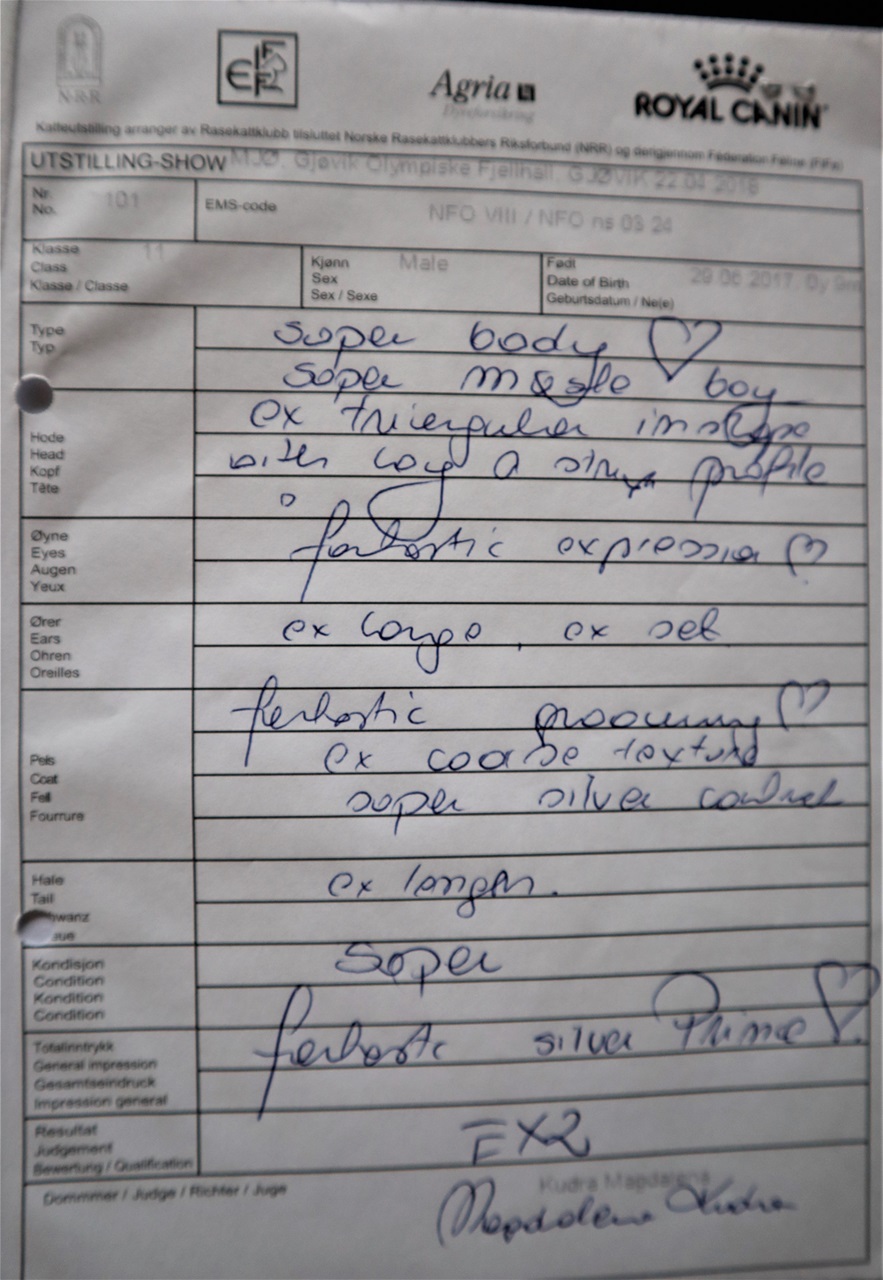 NRR
FIFe
Agria
Dyreforsikring
ROYAL CANIN
Katteutstilling arranger av Rasekattklubb tilsluttet Norske Rasekattklubbers Riksforbund (NRR) og derigjennom Federation Feline (FIFe)
UTSTILLING-SHOW MJØ, Gjøvik Olympiske Fjellhall, GJØVIK 22.04.2018
Nr. 101
No.
EMS-code NFO VIII / NFO ns 03 24
Klasse 11
Class
Klasse / Classe
Kjønn Male
Sex
Sex / Sexe
Født
Date of Birth 29.06.2017, 0y 9m
Geburtsdatum / Ne(e)
Type
Typ
soper body ♡
soper boy
Hode
Head
Kopf
Tête
ex
profile
Øyne
Eyes
Augen
Yeux
fantastic expression ♡
Ører
Ears
Ohren
Oreilles
ex large, ex set
Pels
Coat
Fell
Fourrure
fantastic grooming ♡
ex coarse texture
soper silver
Hale
Tail
ex
Kondisjon
Condition
Kondition
Condition
soper
Totalinntrykk
General impression
Gesamteindruck
Impression general
fantastic silver Prince ♡
Resultat
Judgement
Bewertung / Qualification
EX2
Dommer / Judge / Richter / Juge
Kudra Magdalena
Magdalena Kudra